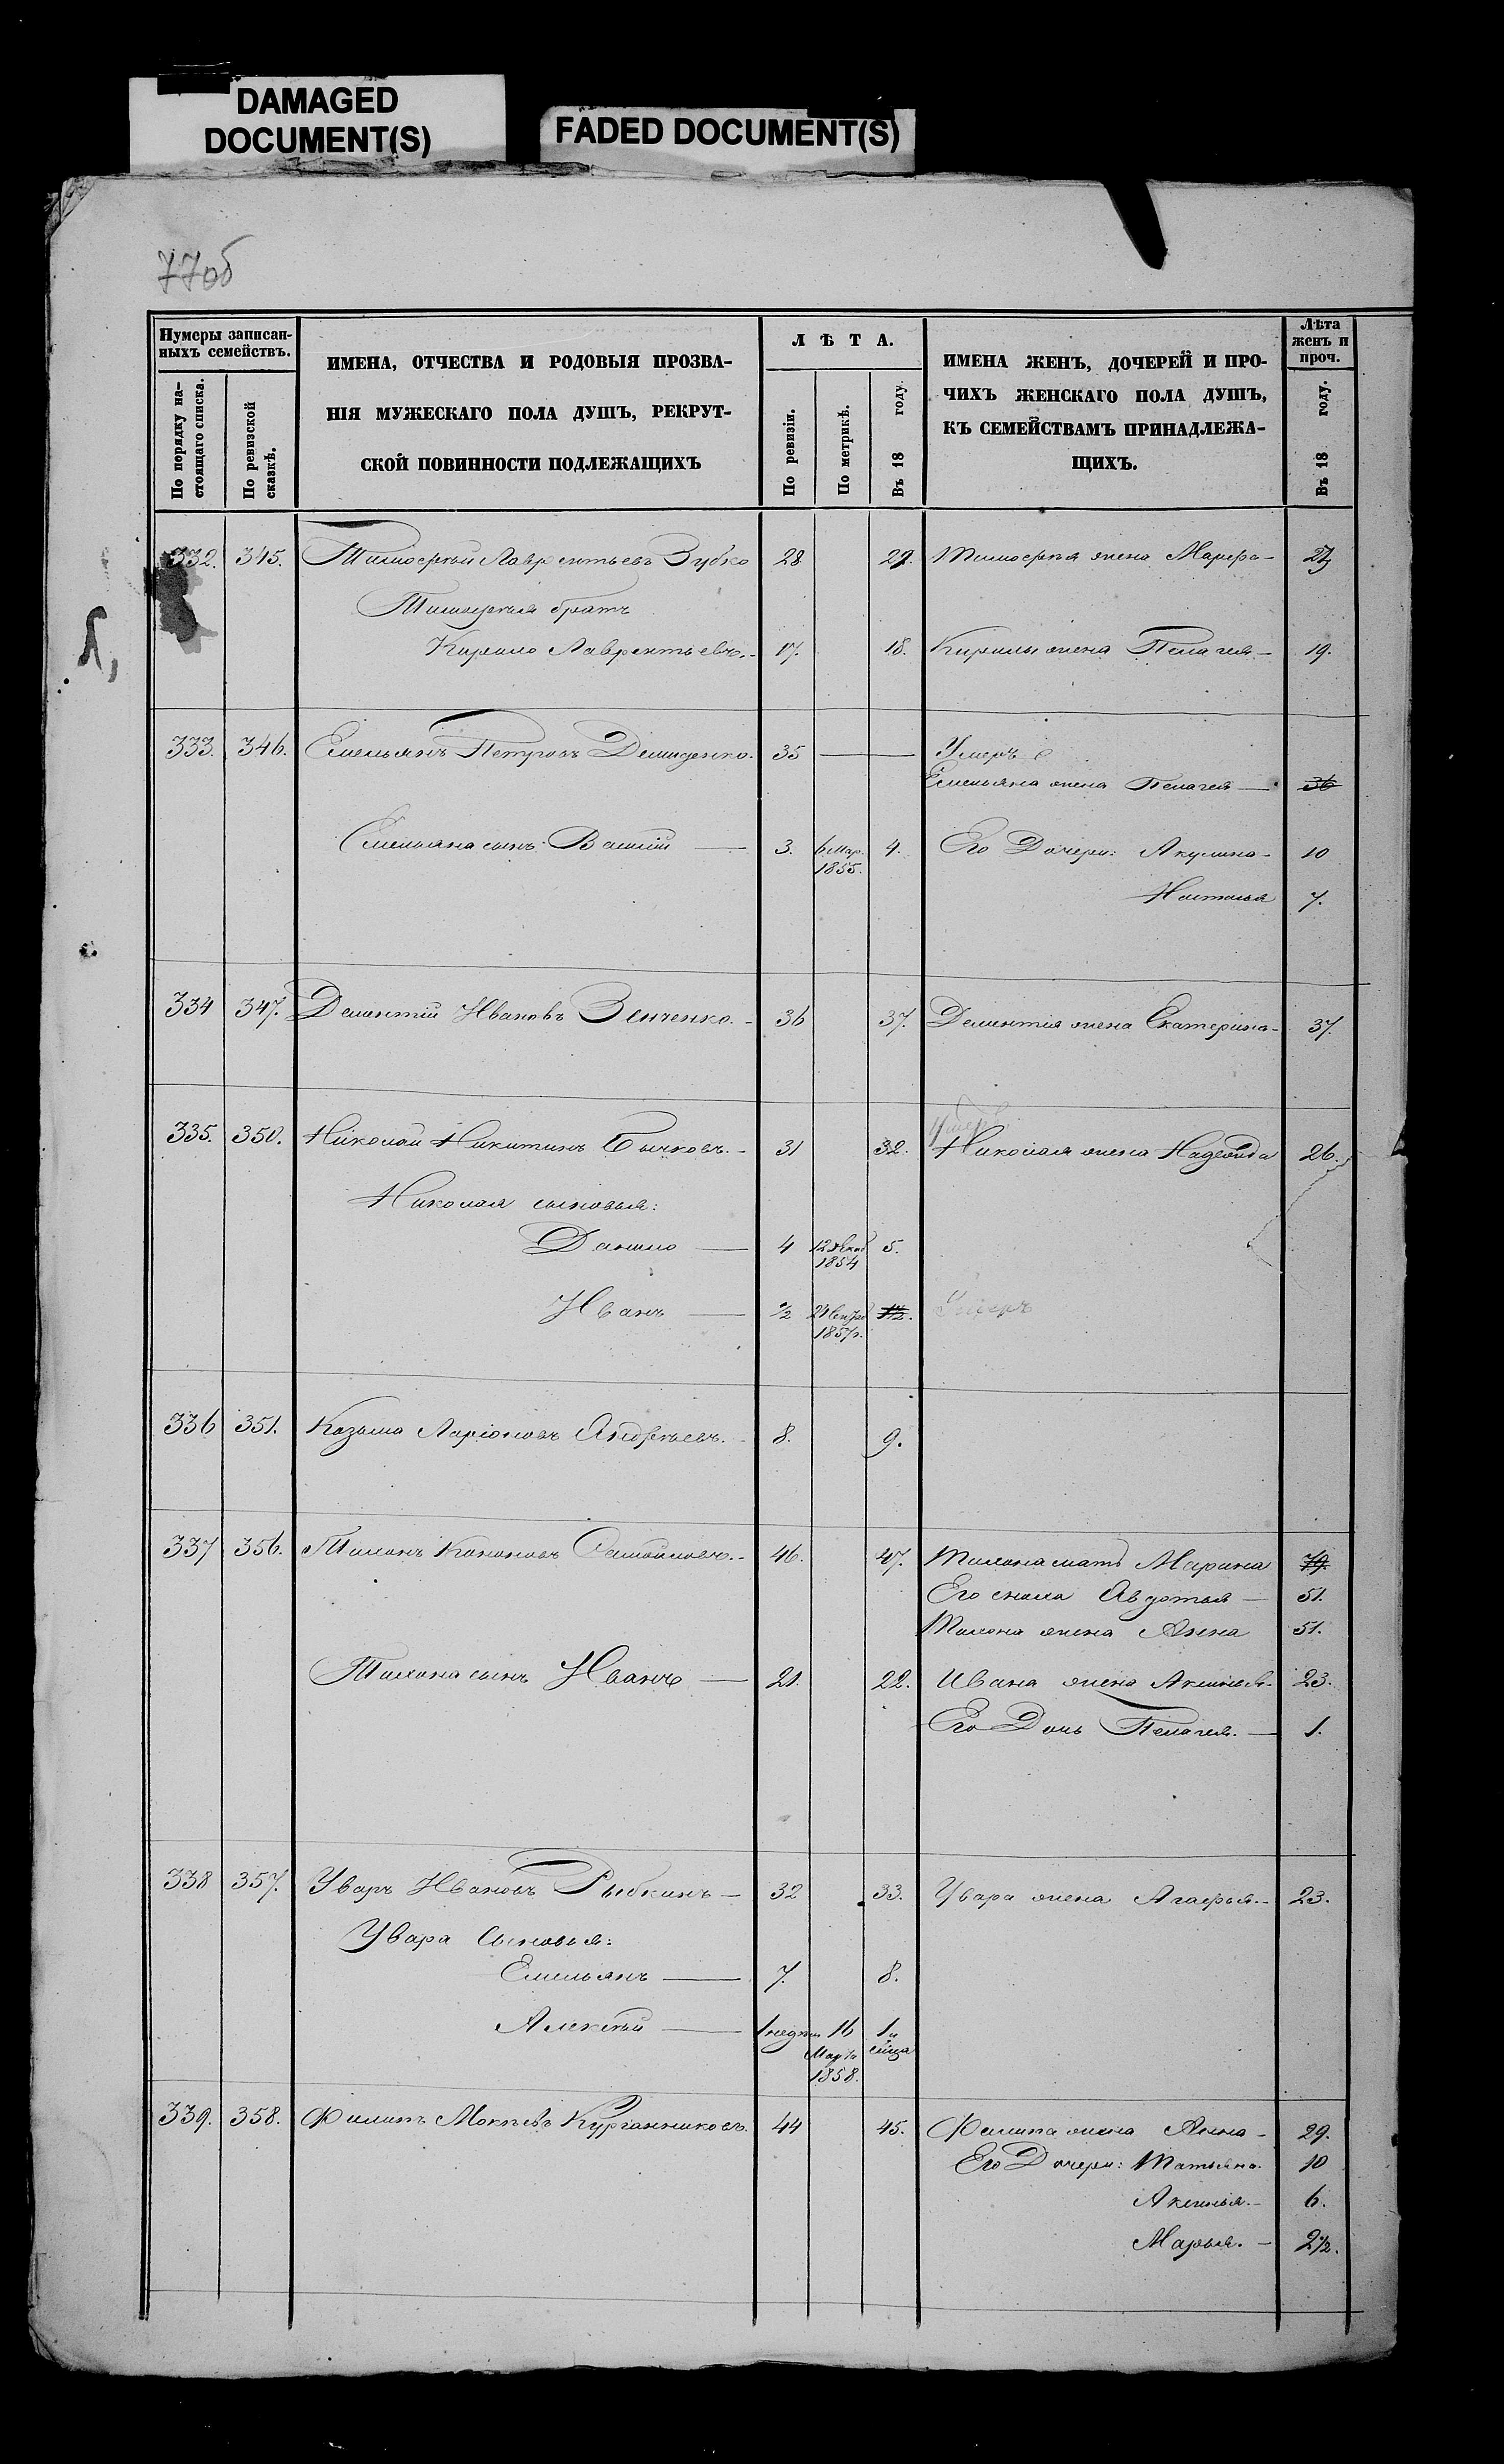 DAMAGED
DOCUMENT(S)
FADED DOCUMENT(S)
77об
Нумеры записан-
ныхъ семействъ.
По порядку на-
стоящаго списка.
По ревизской
сказкѣ.
ИМЕНА, ОТЧЕСТВА И РОДОВЫЯ ПРОЗВА-
НІЯ МУЖЕСКАГО ПОЛА ДУШЪ, РЕКРУТ-
СКОЙ ПОВИННОСТИ ПОДЛЕЖАЩИХЪ
ЛѢТА.
По ревизіи.
По метрикѣ.
Въ 18 году.
ИМЕНА ЖЕНЪ, ДОЧЕРЕЙ И ПРО-
ЧИХЪ ЖЕНСКАГО ПОЛА ДУШЪ,
КЪ СЕМЕЙСТВАМЪ ПРИНАДЛЕЖА-
ЩИХЪ.
Лѣта
женъ и
проч.
Въ 18 году.
332. 345. Тимоѳей Лаврентьевъ Зубко 28 29. Тимоѳея жена Марѳа - 27
Тимоѳея братъ
Кирило Лаврентьевъ. - 17. 18. Кирилы жена Пелагея. - 19.
333. 346. Емельянъ Петровъ Демиденко. 35 — Умеръ
Емельяна жена Пелагея — 36
Емельяна сынъ: Василій — 3. 6 Мар. 4. Его Дочери: Акулина - 10
1855.
Наталья 7.
334 347. Дементій Ивановъ Зенченко. - 36 37. Дементія жена Екатерина - 37.
335. 350. Николай Никитинъ Бычковъ. - 31 32. Николая жена Надежда 26.
Николая сыновья:
Данило — 4 12 Декаб 5.
1854
Иванъ — 1/2 24 Сентяб 1 1/2. Умеръ
1857г.
336 351. Казьма Ларіоновъ Андреевъ. - 8. 9.
337 356. Тимонъ Кононовъ 46. 47. Тимона мать Марина 79.
Его сноха Авдотья — 51.
Тимона жена Анна 51.
Тимона сынъ Иванъ — 21. 22. Ивана жена Аксинья - 23.
Его Дочь Пелагея. — 1.
338 357. Уваръ Ивановъ Рыбкинъ — 32 33. Увара жена Агаѳья. - 23.
Увара Сыновья:
Емельянъ — 7. 8.
Алексѣй — 1 недѣли 16 1 и
Марта сица
1858.
339. 358. Филипъ Мокѣевъ Курганниковъ. 44 45. Филипа жена Анна - 29.
Его Дочери: Татьяна. 10
Аксинья. - 6.
Марья. - 2 1/2.